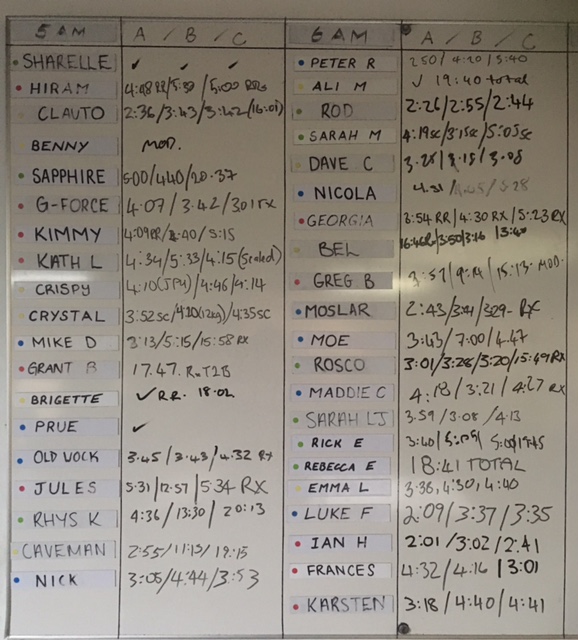 5 AM A / B / C
SHARELLE ✓ ✓ ✓
HIRAM
CLAUTO 2:36/3:43/3:42(16:01)
BENNY MOD.
SAPPHIRE 5:00/4:40/20.37
G-FORCE 4.07 / 3.42 / 3.01 RX
KIMMY 4:09RR/ /5:15
KATH L 4:34/5:33/4:15(Scaled)
CRISPY /4:46/4:14
CRYSTAL 3:52sc/4:20(12kg)/4:35sc
MIKE D 3:13/5:15/15:58 RX
GRANT B 17.47. T2B
BRIGETTE ✓ RR. 18.02
PRUE ✓
OLD UOCK 3.45 / 3.43 / 4.32 RX
JULES 5.31/12.57/ 5:34 RX
RHYS K 4:36/ 13:30 / 20:13
CAVEMAN 2:55/11:13/ 19:15
NICK 3:05/4:44/3:53
6 AM A / B / C
PETER R 2 50/ 4:20 /5:40
ALI M ✓ 19:40 total
ROD 2:26/2:55/2:44
SARAH M 4:19sc/3:15sc/5:05sc
DAVE C
NICOLA
GEORGIA 3:54 RR/4:30 RX/5:23 RX
BEL
GREG B MOD.
MOSLAR 2:43/ /3:29- RX
MOE 3:43/ 7:00/ 4.47
ROSCO 3:01/3:28/3:20/15:49RX
MADDIE C 4:18 / 3:21 / 4:27 RX
SARAH LJ 3.59 / 3.08 / 4.13
RICK E 3:40/
REBECCA E 18:41 TOTAL
EMMA L 3.38, 4:50, 4:40
LUKE F 2:09/3:37/3:35
IAN H 2:01 /3:02/2:41
FRANCES 4:32/4:16 /3:01
KARSTEN 3:18 / 4:40/ 4:41